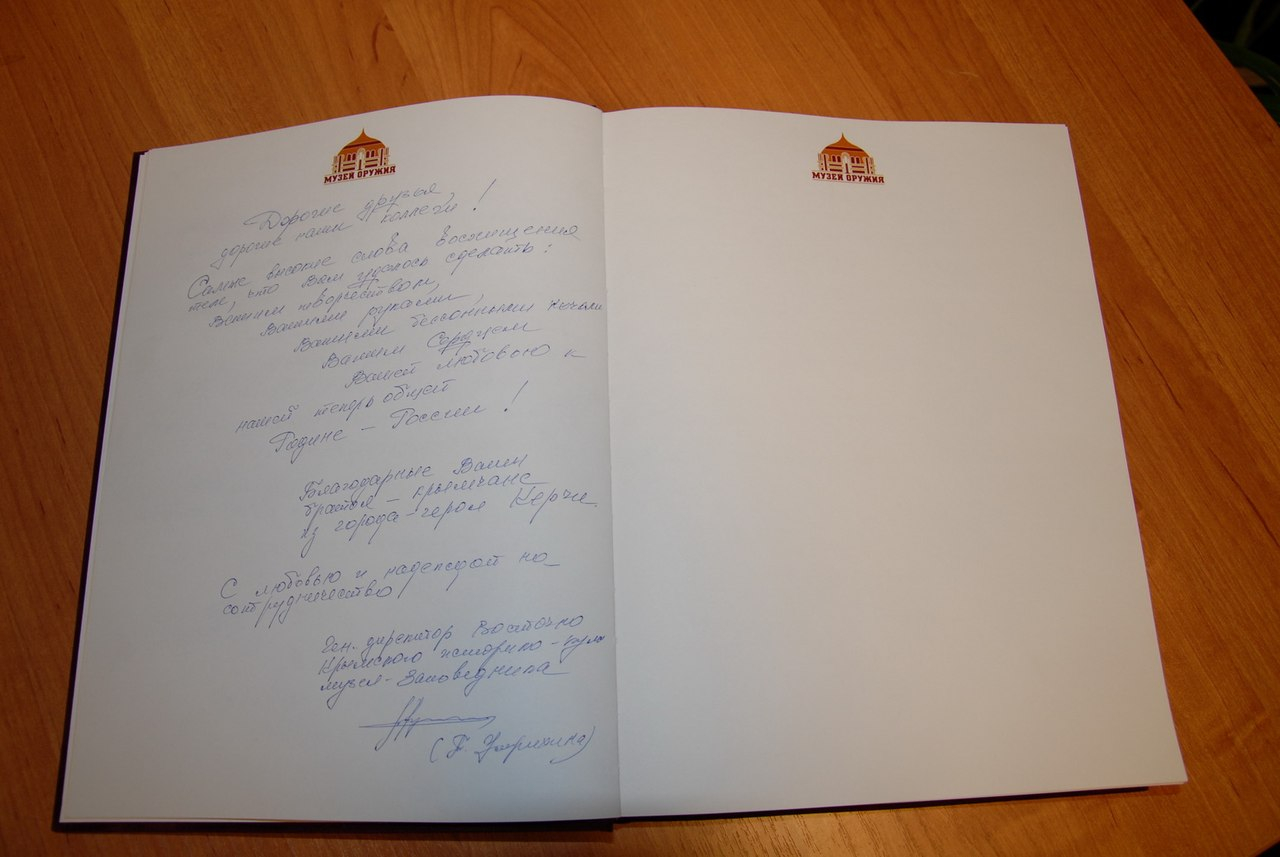 МУЗЕЙ ОРУЖИЯ
Дорогие друзья,
дорогие наши коллеги!
Самые высокие слова восхищения
тем, что Вам удалось сделать:
Вашим творчеством,
Вашими руками,
Вашими бессонными ночами
Вашим Сердцем
Вашей любовью к
нашей теперь общей
Родине – России!
Благодарные Ваши
братья – крымчане
из города-героя Керчи.
С любовью и надеждой на
сотрудничество
Ген. директор Восточно
Крымского историко-культ
музея-Заповедника
(Т. Умрихина)
МУЗЕЙ ОРУЖИЯ